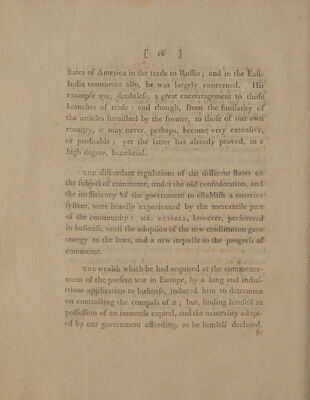 [ 16 ]
ſtates of America in the trade to Ruſſia; and in the Eaſt-
India commerce alſo, he was largely concerned. His
example was, doubtleſs, a great encouragement to thoſe
branches of trade: and though, from the ſimilarity of
the articles furniſhed by the former, to thoſe of our own
country, it may never, perhaps, become very extenſive,
or profitable; yet the latter has already proved, in a
high degree, beneficial.
THE diſcordant regulations of the different ſtates on
the ſubject of commerce, under the old confederation, and
the inefficiency of the government to eſtabliſh a coercive
ſyſtem, were heavily experienced by the mercantile part
of the community: MR. RUSSELL, however, perſevered
in buſineſs, until the adoption of the new conſtitution gave
energy to the laws, and a new impulſe to the progreſs of
commerce.
THE wealth which he had acquired at the commence-
ment of the preſent war in Europe, by a long and induſ-
trious application to buſineſs, induced him to determine
on contracting the compaſs of it; but, finding himſelf in
poſſeſſion of an immenſe capital, and the neutrality adopt-
ed by our government affording, as he himſelf declared,
ſo